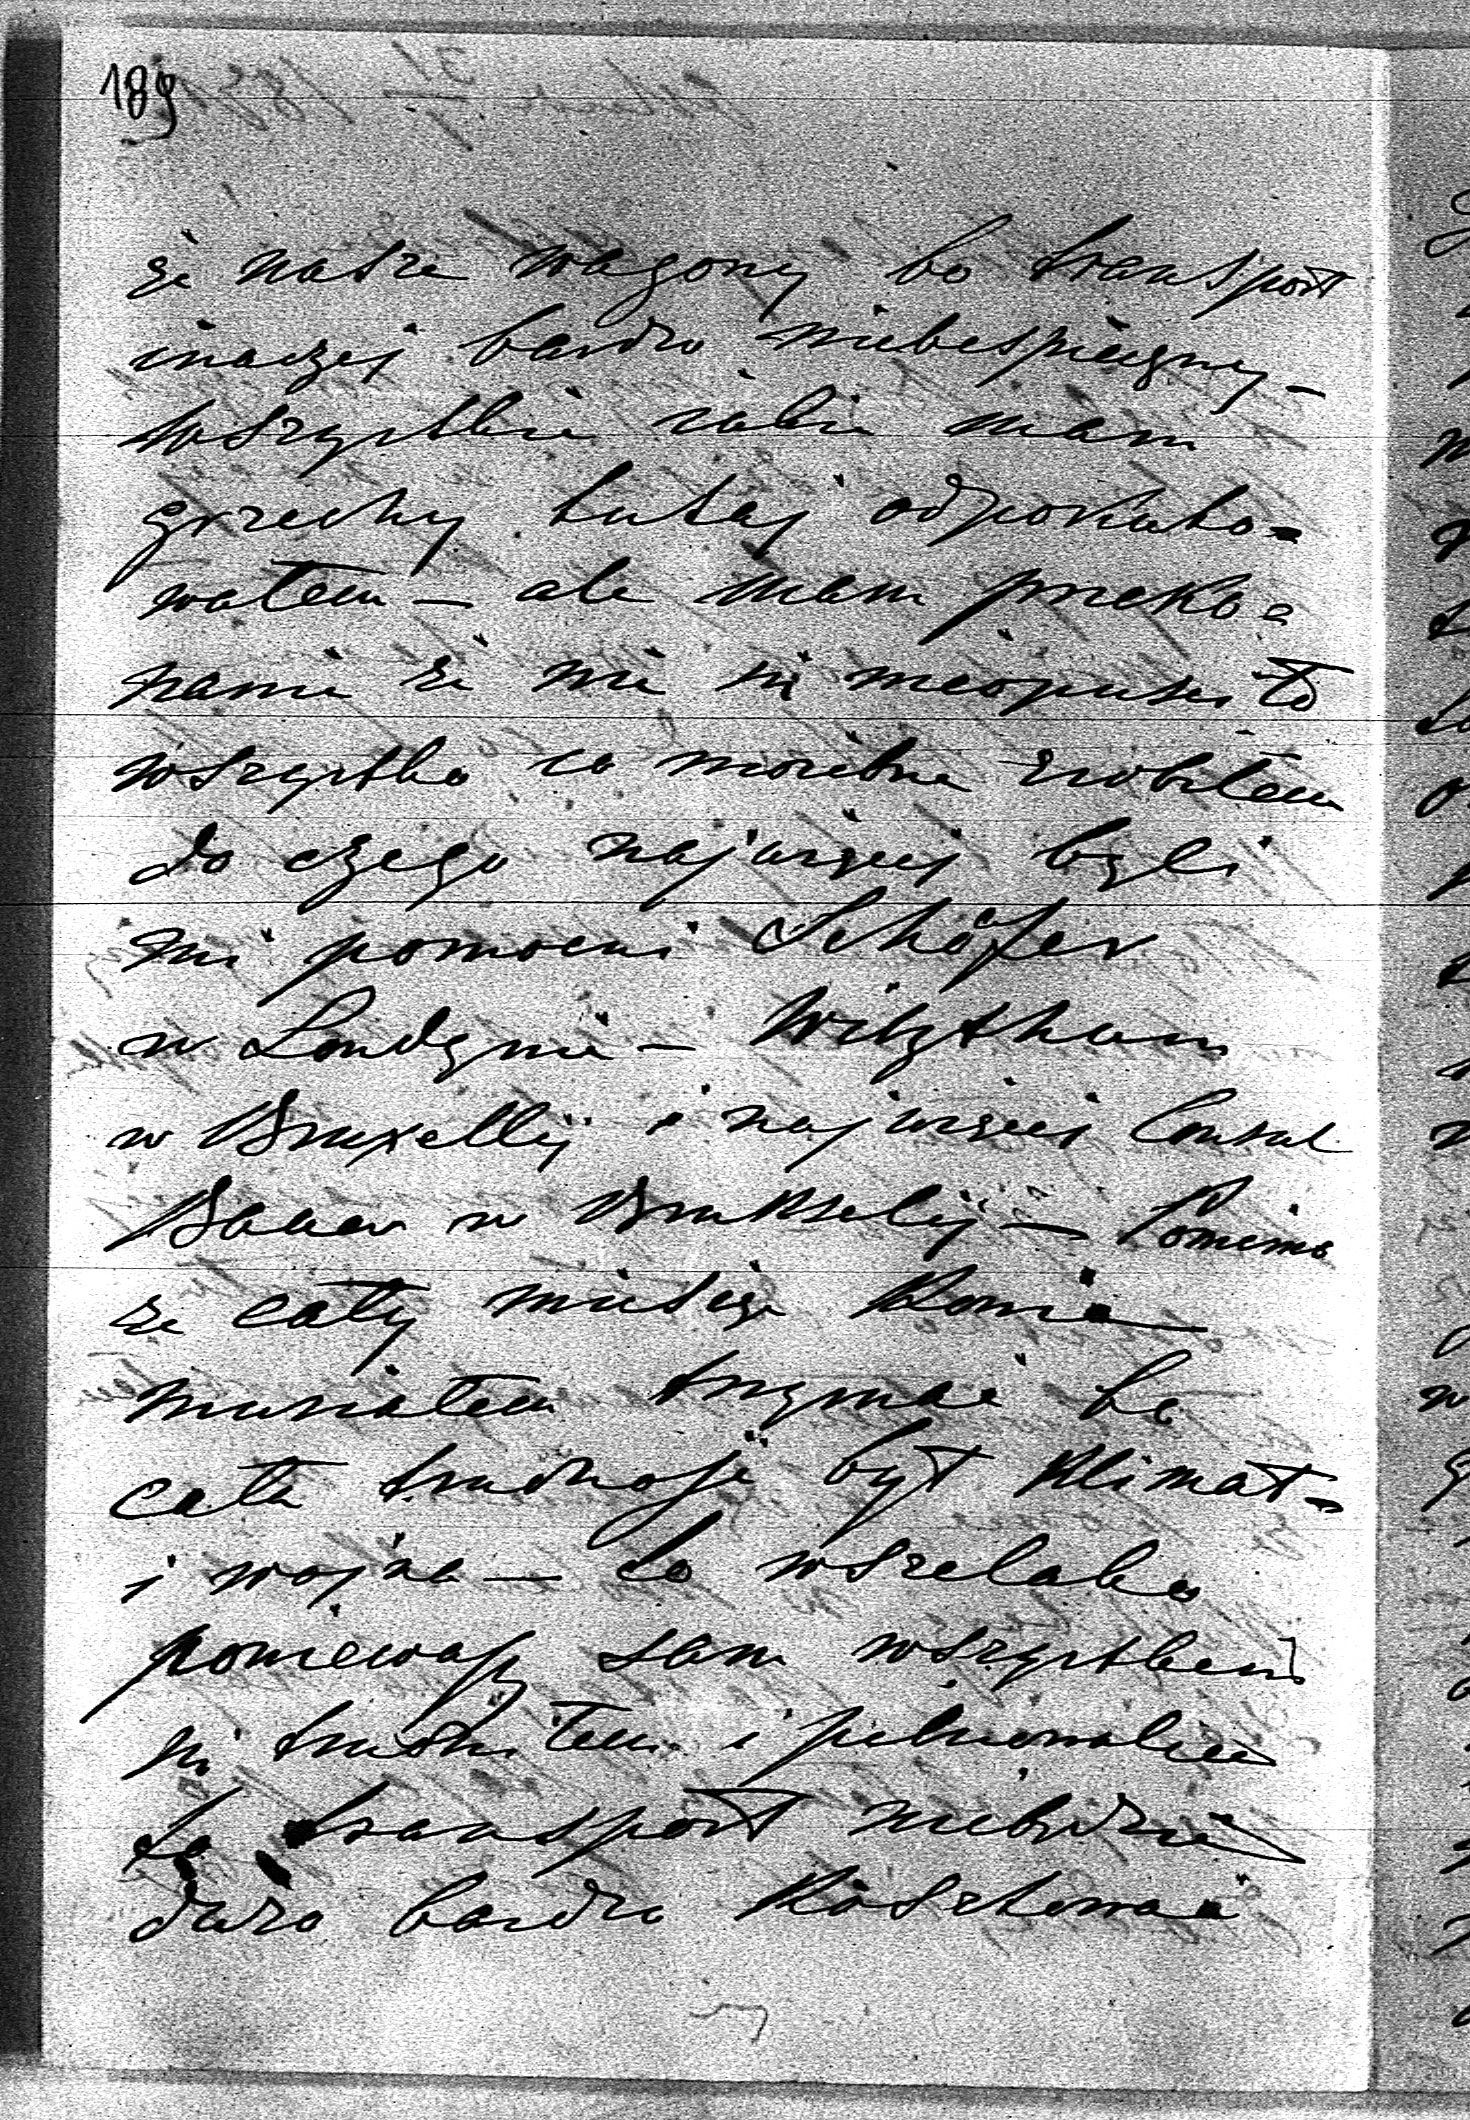 189
że nasze wagony bo transport
inaczej bardzo niebespieczny –
wszystkie jakie mam
grzechy tutaj odpokuto=
wałem – ale mam przeko=
nanie że nic ni nieopuści to
wszystko co możebne zrobiłem
do czego najwięcej byli
mi pomocni Schäfer
w Londynie – Witzthum
w Bruxelly i najwięcej Consul
Bauer w Bruksely – Pomimo
że cały miesiąc Konie
musiałem trzymać bo
cała trudność był Klimat –
i wojna – to wszelako
poniewasz sam wszystkiem
ni trudniłem i pilnowałem
to transport niebędzie
dużo bardzo Kosztować